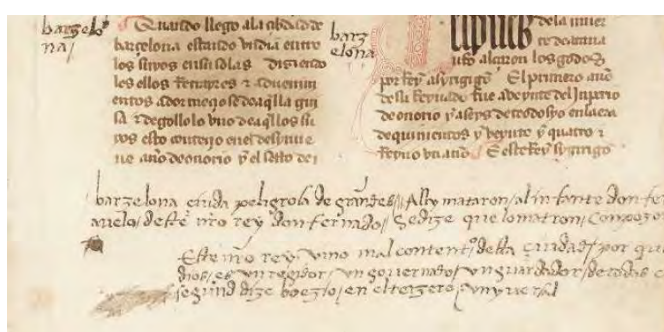 barzelo
na/
Quando llego ala cibdad de
barçelona estando vn dia entre
los suyos en sus solas diziendo
les ellos
entos adormeçiose daqlla gui
sa & degollolo vno de aqllos su
yos esto contenjo en el
ue año de onorio y el seteno de
barz
elona
de la muer
te de
alçaron los godos
por Rey a sygigo El primero año
de su Reynado fue a veynte del Inperio
de onorio y a seys de teodosyo en la era
de quinientos y veynte y quatro &
Reyno vn año E este Rey sygirigo
barzelona ciuda peligrosa de grandes// Ally mataron/ al infante don fer
auelo/ deste nro rey don fernado/ Se dize que lo matron/ Compozo
Este nro rey/ vino mal content°/ desta ciudad/ por que
dios/ es vn regidor/ vn governado/ vn guardador/ de todas c
segund dize boezio/ en el terzero/ vnyversal